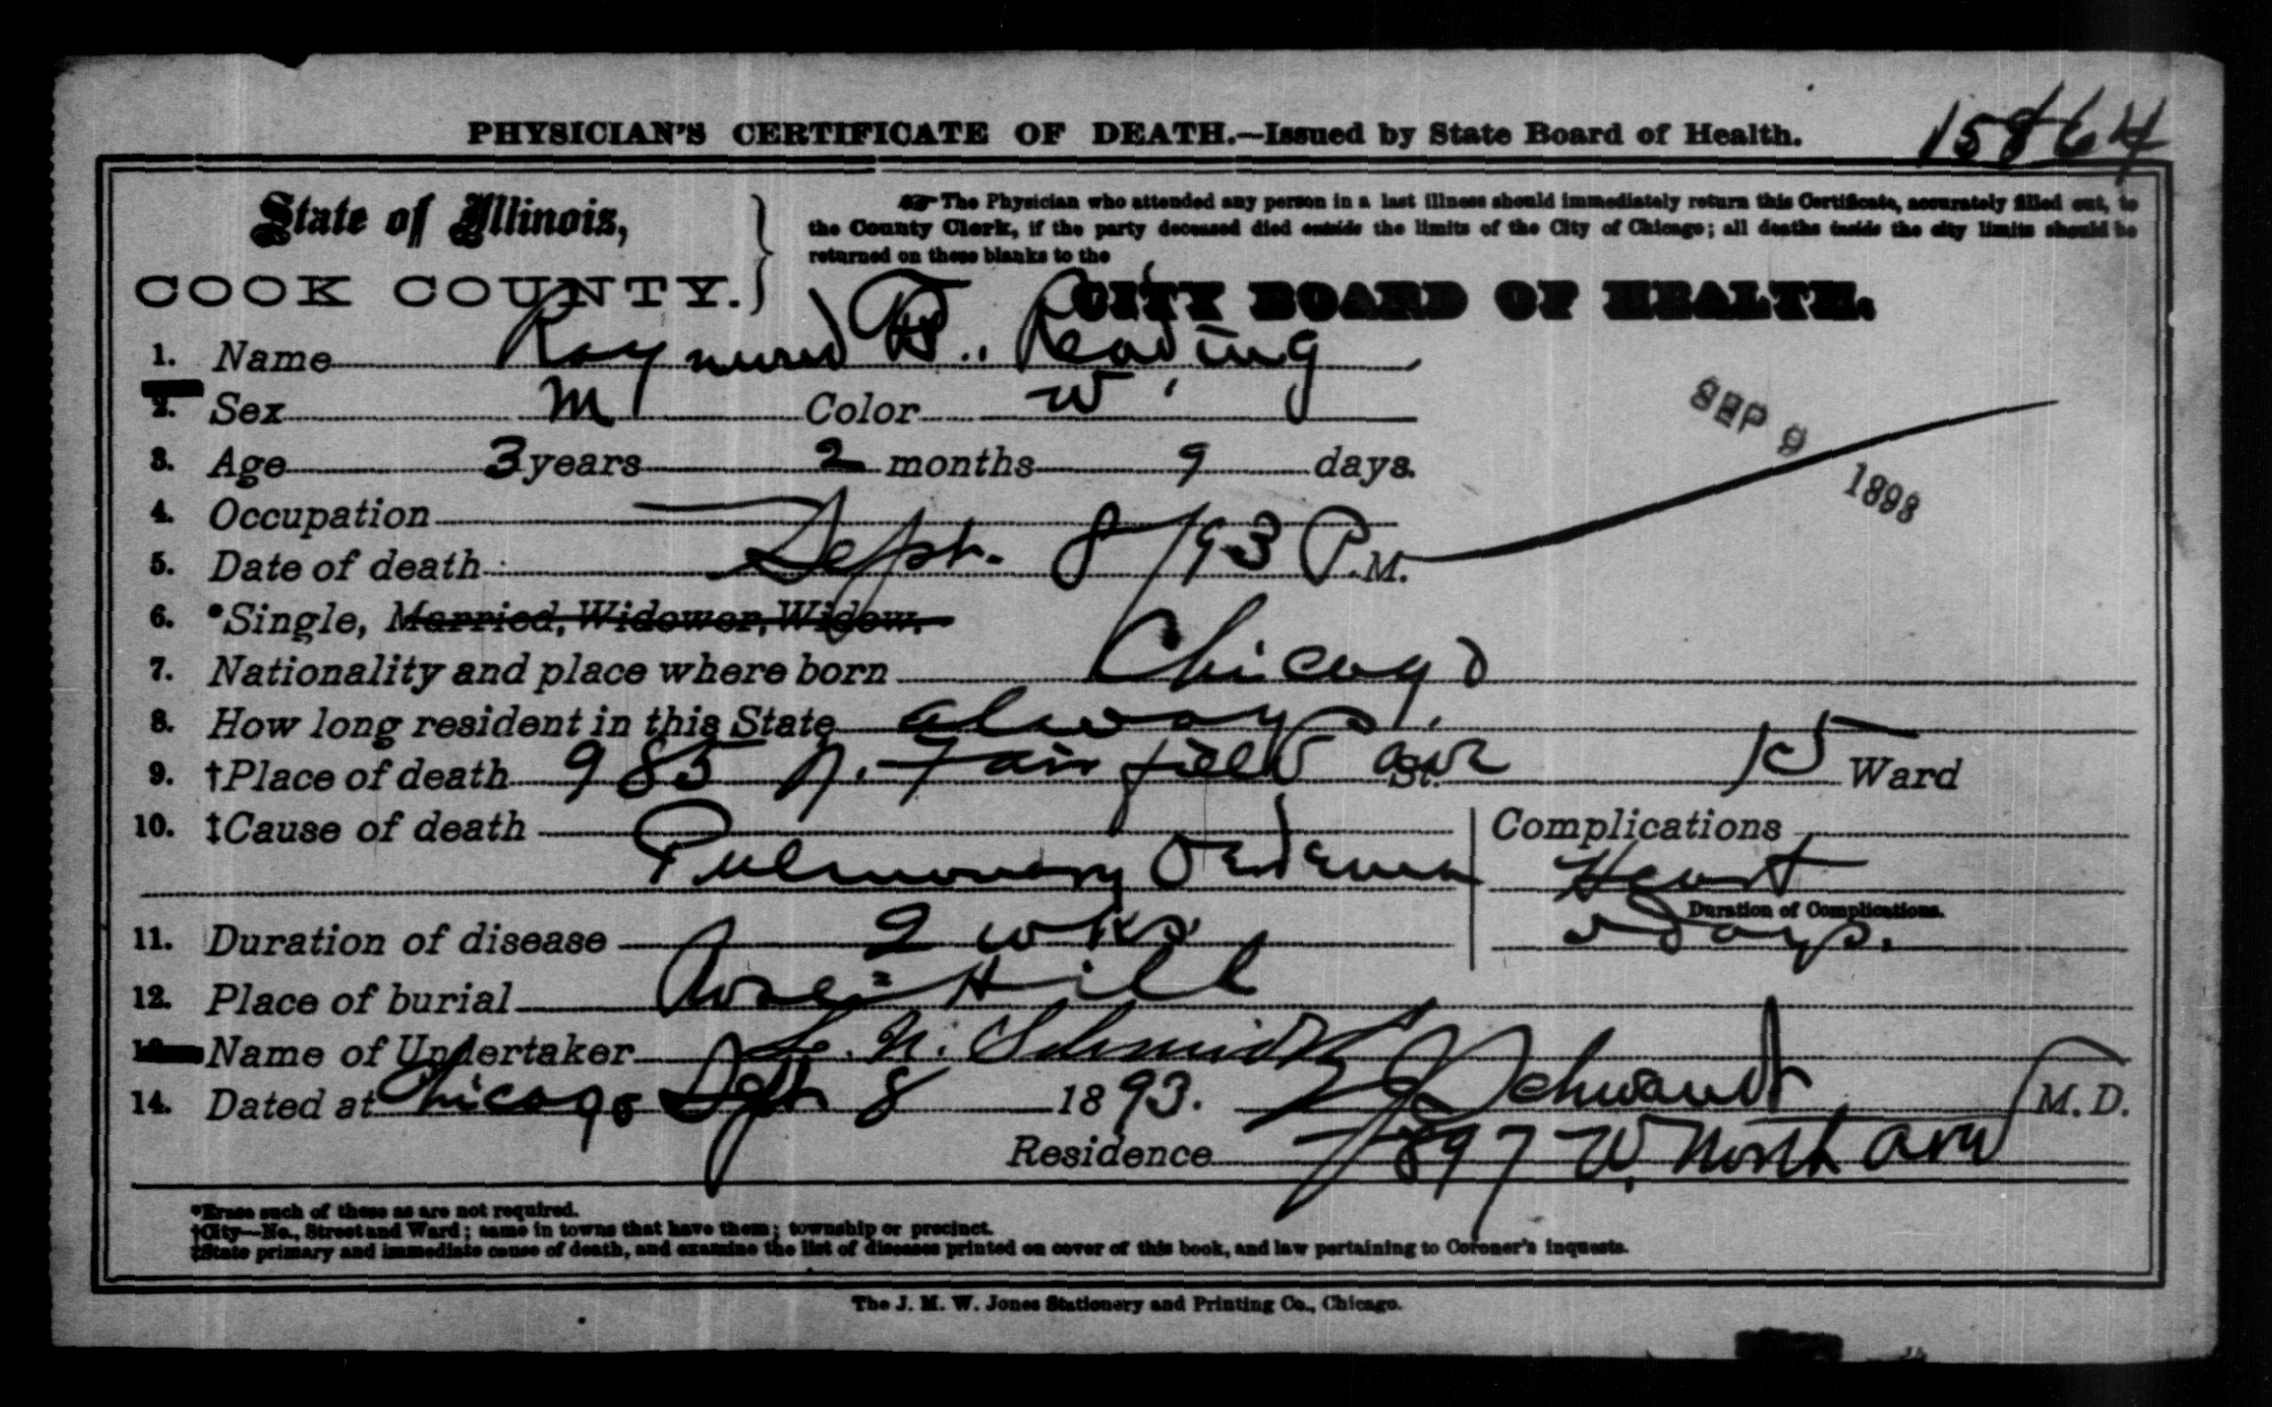 PHYSICIAN'S CERTIFICATE OF DEATH.—Issued by State Board of Health. 15864
State of Illinois,
COOK COUNTY.
The Physician who attended any person in a last illness should immediately return this Certificate, accurately filled out, to
the County Clerk, if the party deceased died outside the limits of the City of Chicago; all deaths inside the city limits should be
returned on these blanks to the
CITY BOARD OF HEALTH.
1. Name Raymund F. Reading
2. Sex M Color W
SEP 9 1893
3. Age 3 years 2 months 9 days.
4. Occupation
5. Date of death Sept. 8/93 P.M.
6. *Single, Married, Widower, Widow.
7. Nationality and place where born Chicago
8. How long resident in this State always.
9. †Place of death 985 N. Fairfield ave St. 15 Ward
10. ‡Cause of death Pulmonary Oedema
Complications Heart
11. Duration of disease 2 wks.
Duration of Complications.
days.
12. Place of burial Rose Hill
13. Name of Undertaker Schmidt
14. Dated at Chicago Sept 8 1893. Schwandt M.D.
Residence 897 W. North ave
*Erase such of these as are not required.
†City—No., Street and Ward; same in towns that have them; township or precinct.
‡State primary and immediate cause of death, and examine the list of diseases printed on cover of this book, and law pertaining to Coroner's inquests.
The J. M. W. Jones Stationery and Printing Co., Chicago.